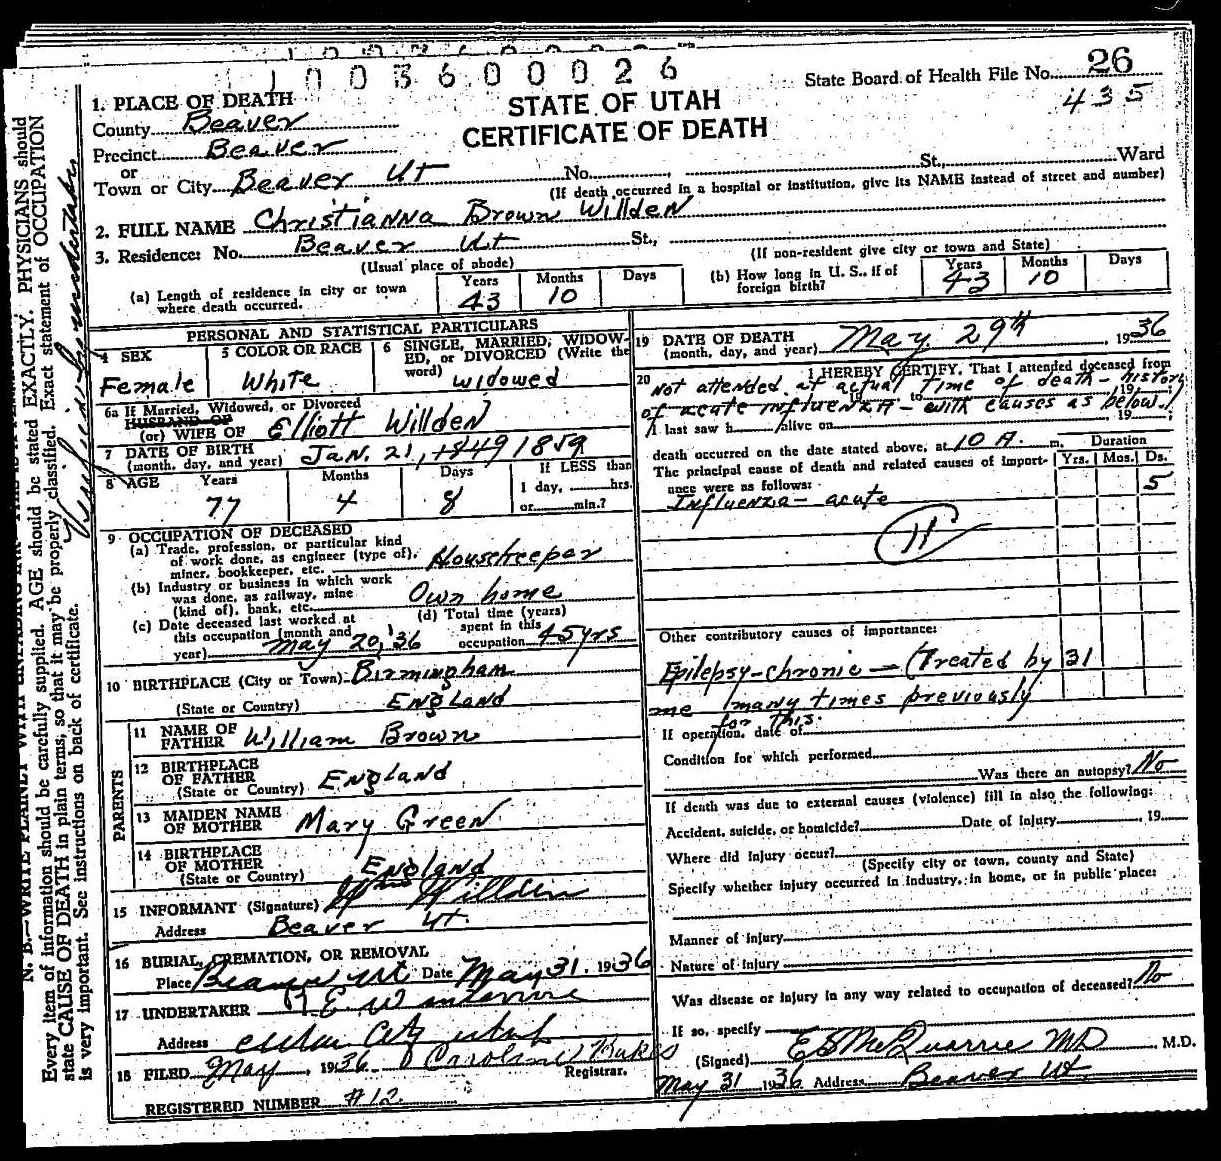 1003600026
State Board of Health File No. 26
435
STATE OF UTAH
CERTIFICATE OF DEATH
1. PLACE OF DEATH
County Beaver
Precinct Beaver
or
Town or City Beaver Ut No. St., Ward
(If death occurred in a hospital or institution, give its NAME instead of street and number)
2. FULL NAME Christianna Brown Willden
3. Residence: No. Beaver Ut St.,
(Usual place of abode)
(If non-resident give city or town and State)
(a) Length of residence in city or town where death occurred. Years 43 Months 10 Days
(b) How long in U. S., if of foreign birth? Years 43 Months 10 Days
PERSONAL AND STATISTICAL PARTICULARS
4 SEX Female
5 COLOR OR RACE White
6 SINGLE, MARRIED, WIDOWED, or DIVORCED (Write the word) Widowed
6a If Married, Widowed, or Divorced
HUSBAND OF
(or) WIFE OF Elliott Willden
7 DATE OF BIRTH (month, day, and year) Jan. 21, 1849 1859
8 AGE Years 77 Months 4 Days 8 If LESS than 1 day, hrs. or min.?
9 OCCUPATION OF DECEASED
(a) Trade, profession, or particular kind of work done, as engineer (type of), miner, bookkeeper, etc. Housekeeper
(b) Industry or business in which work was done, as railway, mine (kind of), bank, etc. Own home
(c) Date deceased last worked at this occupation (month and year) May 20, '36
(d) Total time (years) spent in this occupation 45 yrs
10 BIRTHPLACE (City or Town) Birmingham
(State or Country) England
PARENTS
11 NAME OF FATHER William Brown
12 BIRTHPLACE OF FATHER (State or Country) England
13 MAIDEN NAME OF MOTHER Mary Green
14 BIRTHPLACE OF MOTHER (State or Country) England
15 INFORMANT (Signature) Willden
Address Beaver Ut.
16 BURIAL, CREMATION, OR REMOVAL
Place Beaver Ut Date May 31. 1936
17 UNDERTAKER
Address City Utah
18 FILED May, 1936 Caroline
Registrar.
REGISTERED NUMBER #12.
19 DATE OF DEATH (month, day, and year) May 29th 1936
20 I HEREBY CERTIFY, That I attended deceased from
Not attended at actual time of death - history
19 to 19
of acute influenza - with causes as below.
I last saw h alive on 19
death occurred on the date stated above, at 10 A. m.
The principal cause of death and related causes of importance were as follows:
Duration Yrs. Mos. Ds.
Influenzia - acute 5
11
Other contributory causes of importance:
Epilepsy - chronic - (Treated by 31
me many times previously
for this.
If operation, date of
Condition for which performed
Was there an autopsy? No
If death was due to external causes (violence) fill in also the following:
Accident, suicide, or homicide? Date of injury , 19
Where did injury occur?
(Specify city or town, county and State)
Specify whether injury occurred in industry, in home, or in public place:
Manner of injury
Nature of injury
Was disease or injury in any way related to occupation of deceased? No
If so, specify
(Signed) E S McQuarrie MD , M.D.
May 31 1936 Address Beaver Ut.
N. B.—WRITE PLAINLY WITH UNFADING INK
Every item of information should be carefully supplied. AGE should be stated EXACTLY. PHYSICIANS should
state CAUSE OF DEATH in plain terms, so that it may be properly classified. Exact statement of OCCUPATION
is very important. See instructions on back of certificate.